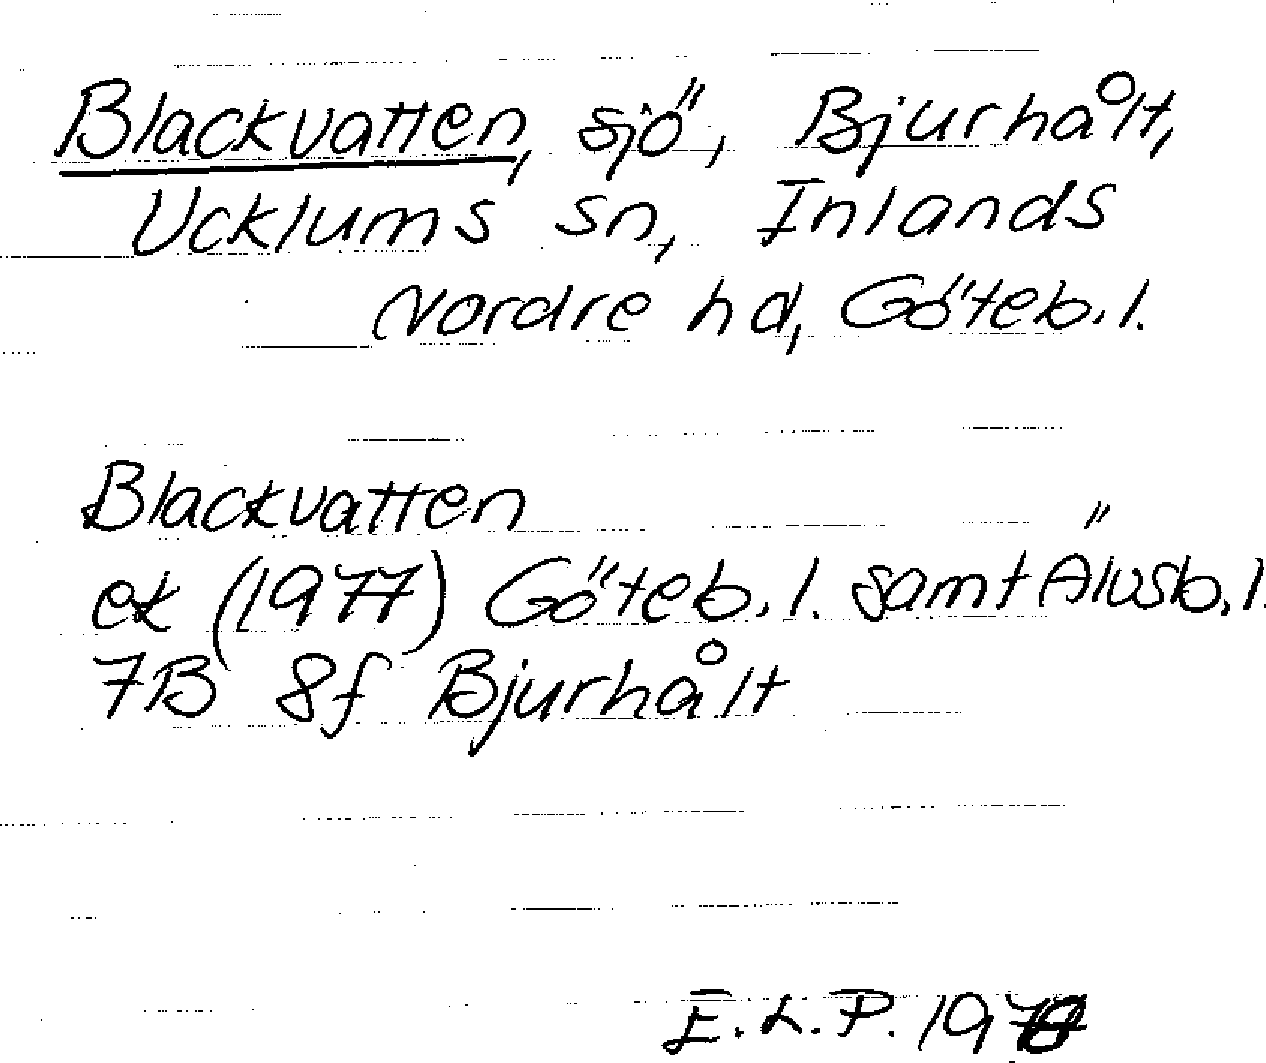 Blackvatten, sjö, Bjurhålt,
Ucklums sn, Inlands
Nordre hd, Göteb. l.
Blackvatten
ek (1977) Göteb. l. samt Älvsb. l.
7B 8f Bjurhålt
E. L. P.